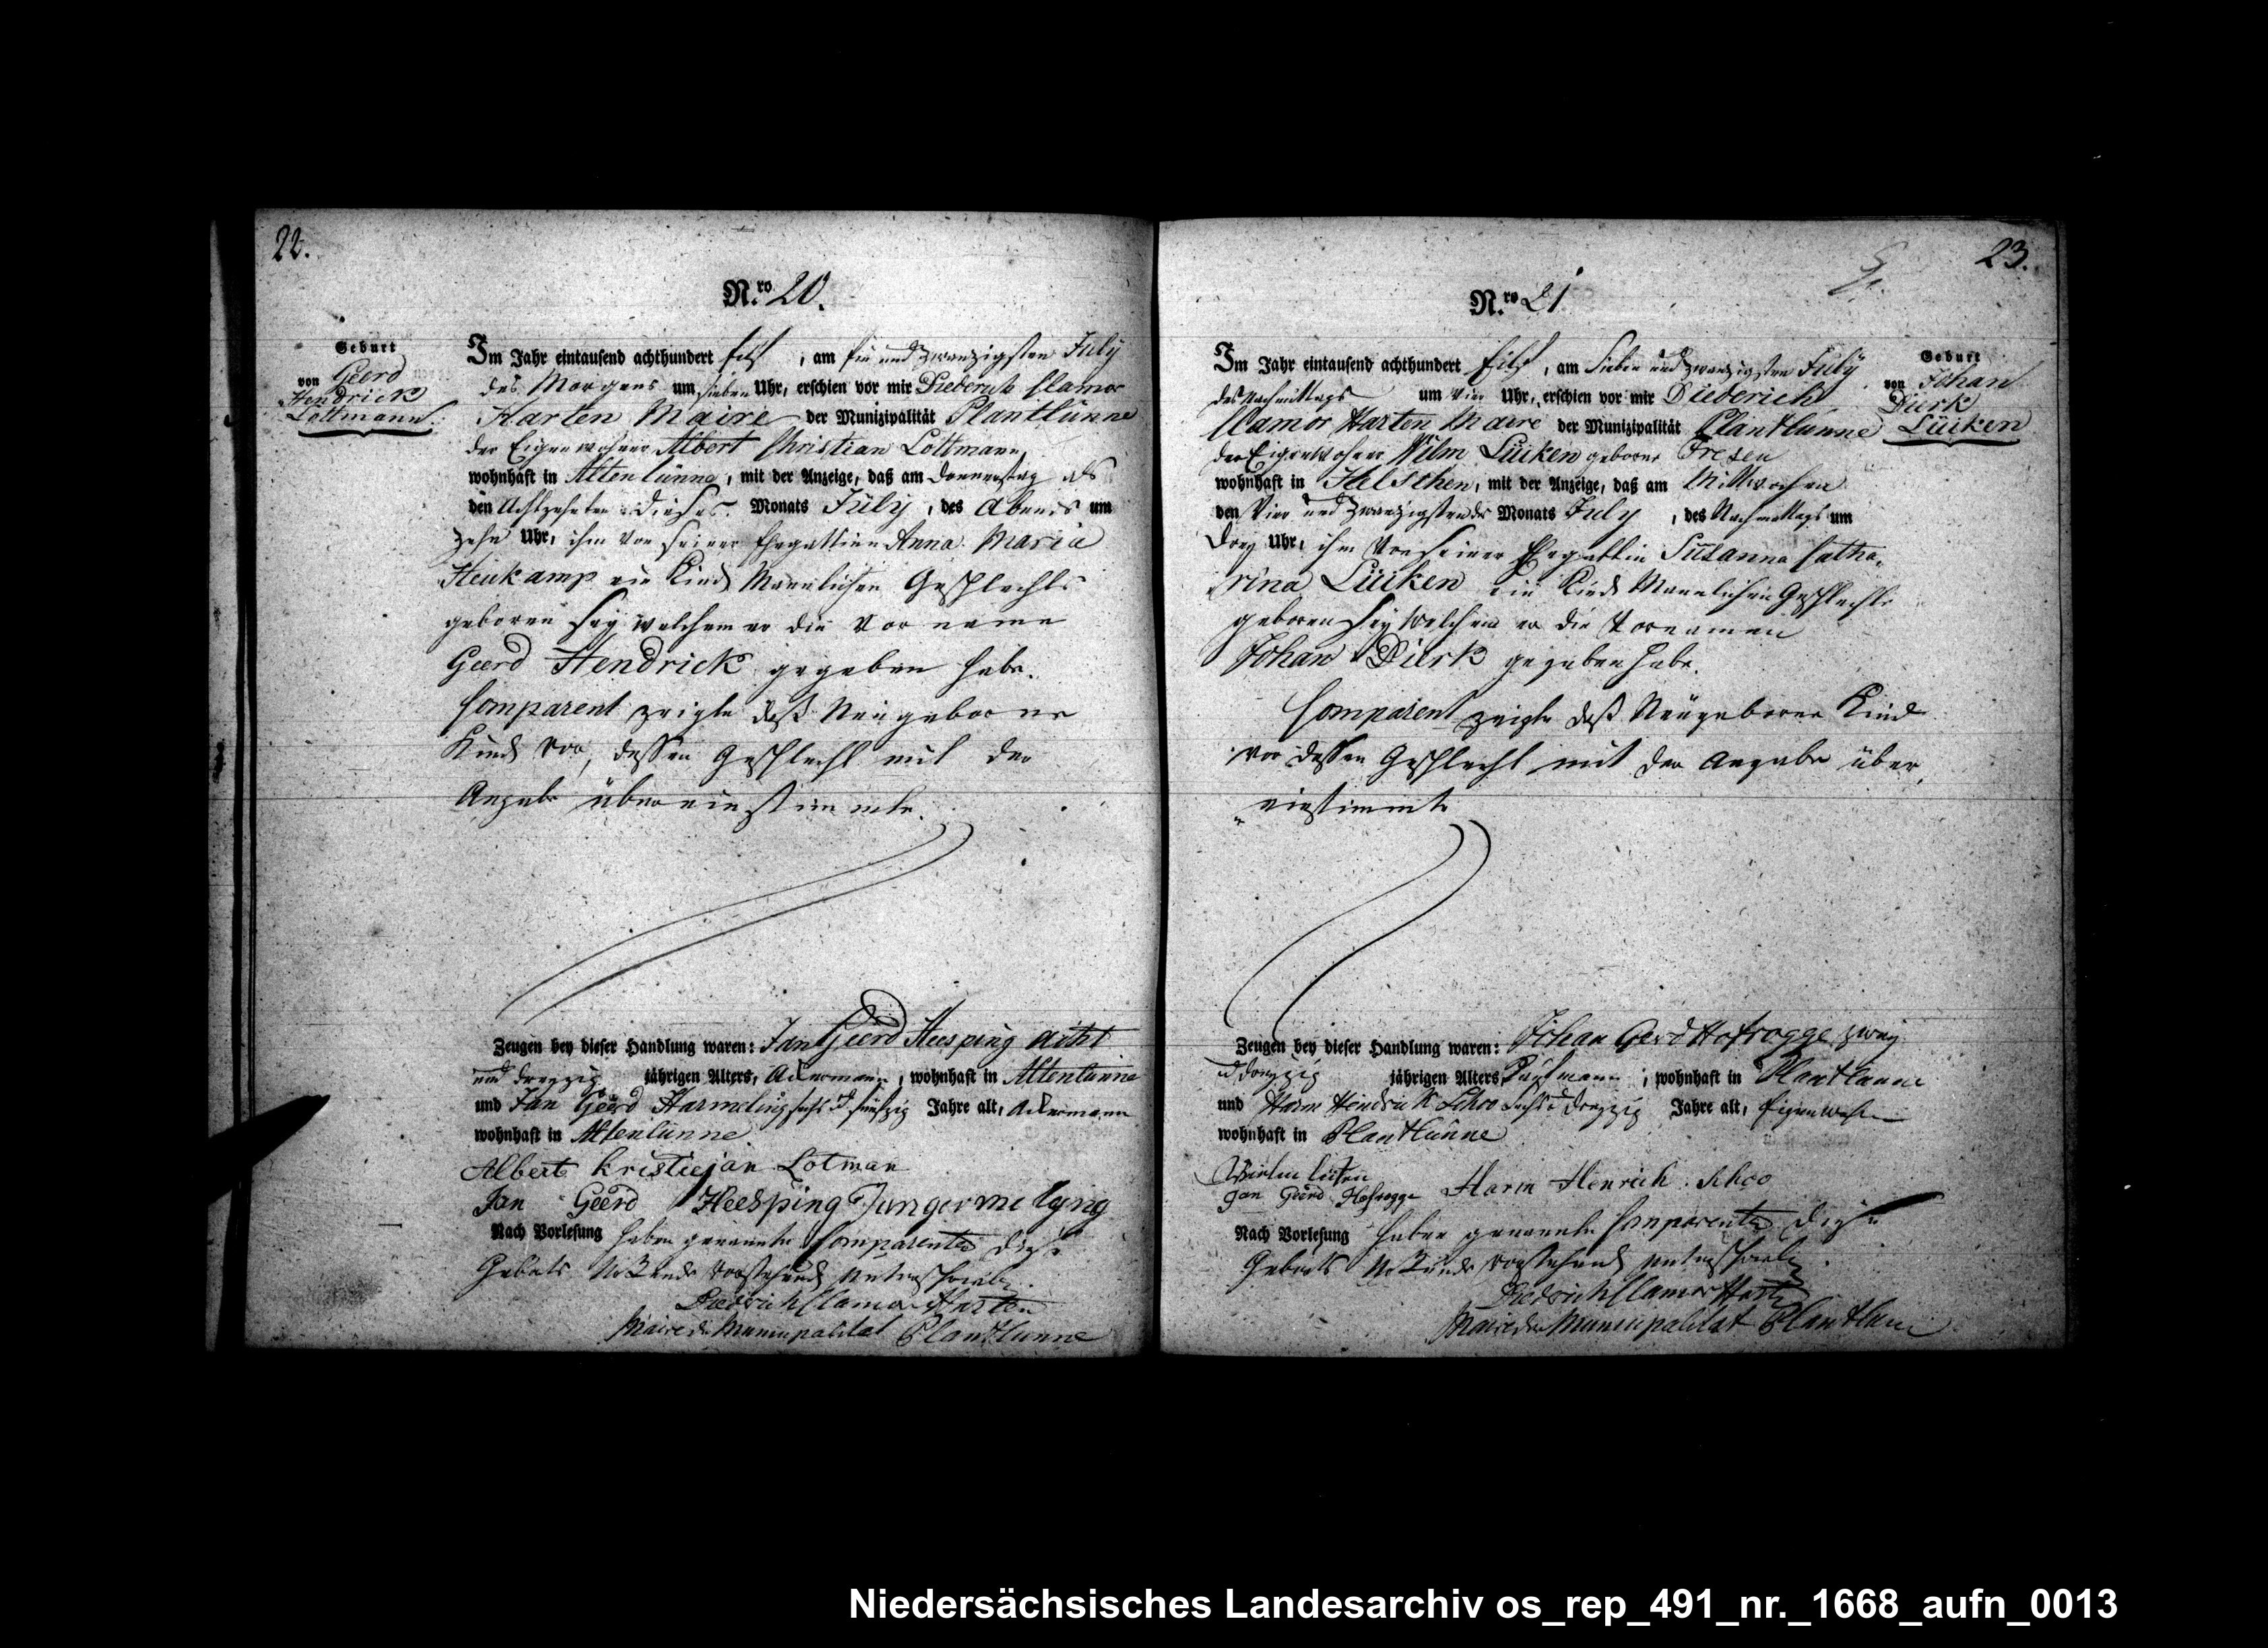 22.
Nro 20.
Geburt
von Geerd
Hendrick
Lottmann
Im Jahr eintausend achthundert Eilf, am Ein und zwanzigsten July
des Morgens um sieben Uhr, erschien vor mir Diederich Clamor
Harten Maire der Munizipalität Plantlünne
der Eigenwohner Albert Christian Lottmann
wohnhaft in Altenlünne, mit der Anzeige, daß am Donnerstag als
den Achtzehnten dieses Monats July, des Abends um
zehn Uhr, ihm von seiner Ehegattinn Anna Maria
Heukamp ein Kind Mannlichen Geschlechts
geboren sey welchem er die Vorname
Geerd Hendrick gegeben habe.
Comparent zeigte daß Neugeborne
Kind vor, dessen Geschlecht mit der
Angabe übereinstimmte.
Zeugen bey dieser Handlung waren: Jan Geerd Heesping acht
und dreyzig jährigen Alters, Ackermann, wohnhaft in Altenlünne
und Jan Geerd Harmeling sechs u. funfzig Jahre alt, Ackermann
wohnhaft in Altenlünne
Albert Kristiejan Lotman
Jan Geerd Heesping
Nach Vorlesung haben genannte Comparenten diese
Geburts Urkunde vorstehend unterschrieben.
Diedrich Clamor Harten
Maire der Municipalitat Plantlunne
23.
Nro 21
Geburt
von Johan
Dirk
Lüiken
Im Jahr eintausend achthundert Eilf, am Sieben und zwanzigsten July
des Nachmittags um Vier Uhr, erschien vor mir Diederich
Clamor Harten Maire der Munizipalität Plantlünne
der Eigenwohner Wilm Lüiken geborne Fresen
wohnhaft in Helschen, mit der Anzeige, daß am Mittwochen
den Vier und Zwanzigsten des Monats July, des Nachmittags um
Drey Uhr, ihm von seiner Ehegattin Susanna Catha
rina Lüiken ein Kind Mannlichen Geschlechts
geboren sey welchem er die Vornamen
Johan Dirk gegeben habe.
Comparent zeigte daß Neugeborne Kind
vor dessen Geschlecht mit der Angabe über
einstimmte
Zeugen bey dieser Handlung waren: Johan Gerd Hofrogge zwey
u dreyzig jährigen Alters, Kaufmann, wohnhaft in Plantlunne
und Harm Hendrick Schoo sechs u dreyzig Jahre alt, Eigenwohner
wohnhaft in Plantlünne
Jan Geerd Hofrogge Harm Henrich Schoo
Nach Vorlesung haben genannte Comparenten diese
Geburts Urkunde vorstehend unterschrieben.
Diedrich Clamor Harten
Maire der Municipalitat Plantlunne
Niedersächsisches Landesarchiv os_rep_491_nr._1668_aufn_0013